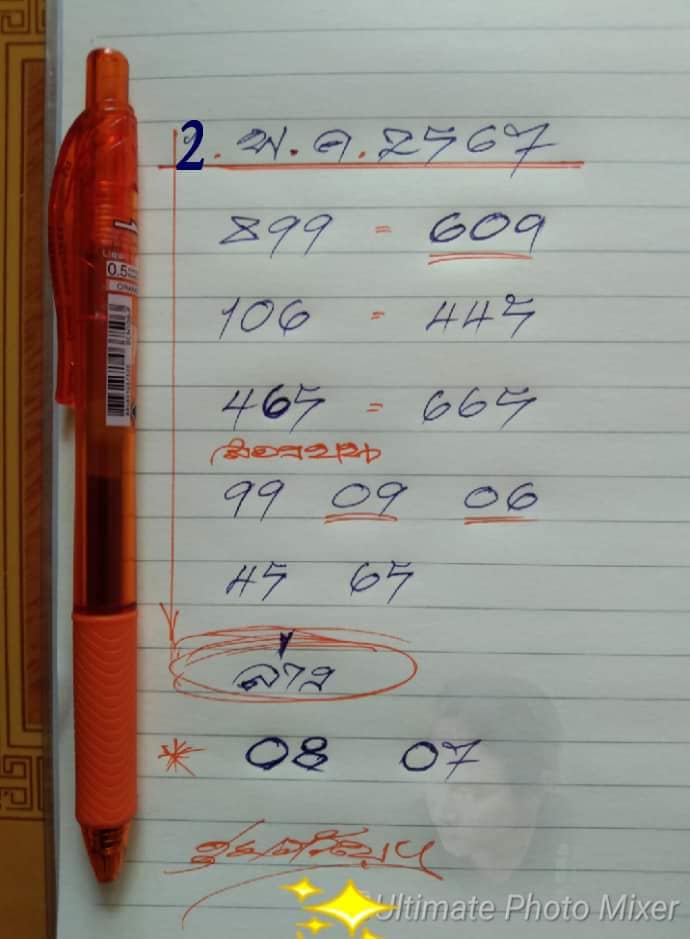 2. พ. ค. 2567
899 = 609
106 = 445
465 = 665
สองบน
99 09 06
45 65
ล่าง
* 08 07
0.5
Ultimate Photo Mixer